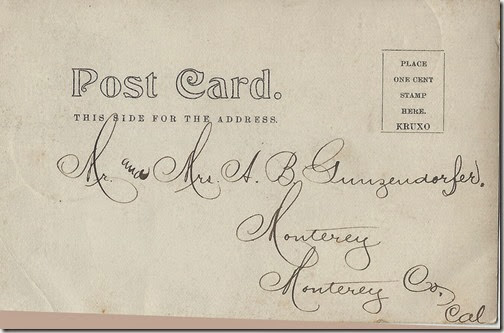 Post Card.
THIS SIDE FOR THE ADDRESS.
PLACE
ONE CENT
STAMP
HERE.
KRUXO
Mr. and Mrs. A. B. Gunzendorfer.
Monterey
Monterey Co,
Cal